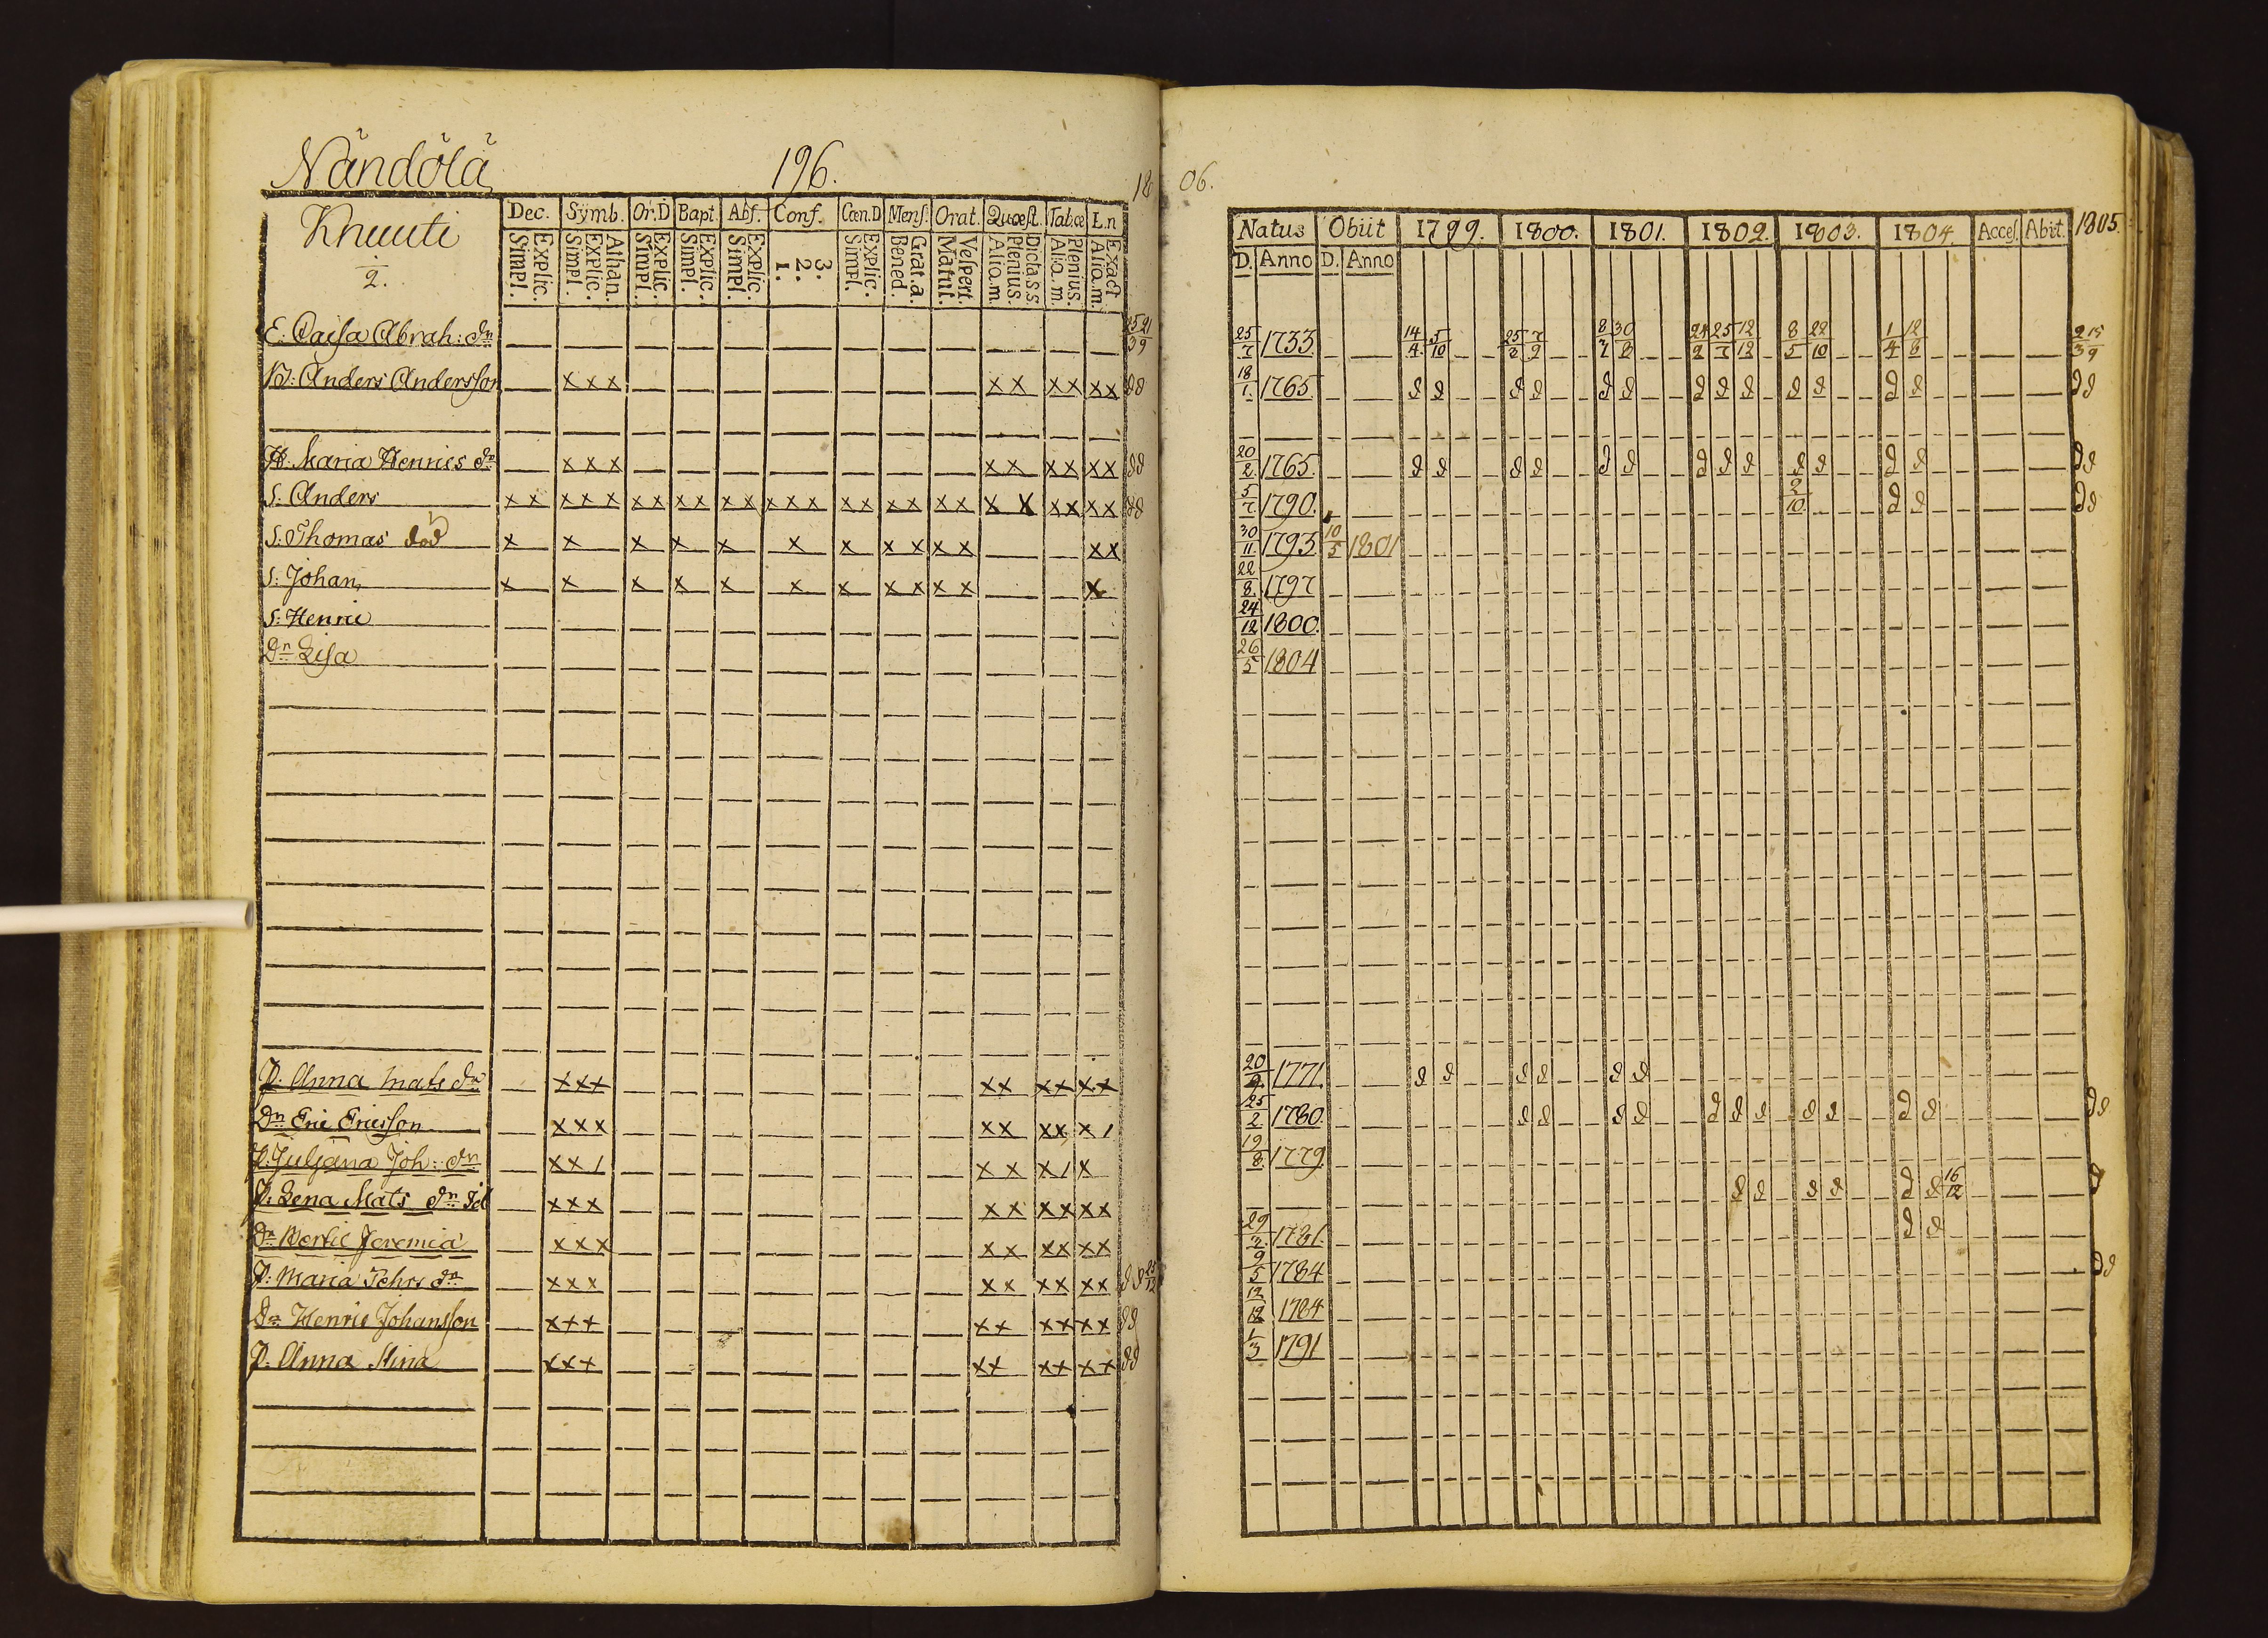 Nändölä 196. 18 06.
Knuuti
2.
Dec. Symb. Or.D Bapt. Abs. Conf. Cœn.D Mens. Orat. Quæst. Tabæ L.n
Explic. Simpl. Athan. Explic. Simpl. Explic. Simpl. Explic. Simpl. Explic. Simpl. 3. 2. 1. Explic. Simpl. Grat.a. Bened. Vespert. Matut. Dicta s.s. Plenius. Alio.m. Plenius. Alio.m. Exact Alio.m.
Natus Obiit 1799. 1800. 1801. 1802. 1803. 1804. Acces. Abit. 1805.
D. Anno D. Anno
E: Caisa Abrah: dn 25/7 1733 14/4 5/10 25/3 7/9 8/7 30/8 21/2 25/7 12/12 8/5 22/10 1/4 12/8
B: Anders Andersson x x x x x x x x x d d 18/1 1765 d d d d d d d d d d d d d d d
H. Maria Henrics dn x x x x x x x x x d d 20/2 1765 d d d d d d d d d d d d d d d
S: Anders x x x x x x x x x x x x x x x x x x x x x x x x x x d d 5/7 1790. 2/10 d d d d
S: Thomas död x x x x x x x x x x x x x 30/11 1793 10/5 1801
S: Johan x x x x x x x x x x x x 22/8 1797
S: Henric 24/12 1800.
Dn Lisa 26/5 1804
P. Anna Mats dn x x x x x x x x x 20/9 1771 d d d d d d
Dn Eric Ericsson x x x x x x x x / 25/2 1780 d d d d d d d d d d d d d
P. Juljana Joh: dn x x / x x x / x 19/8 1779
P: Lena Mats dn x x x x x x x x x d d d d d d 16/12 d
Dn Bertil Jeremia x x x x x x x x x 29/3 1781 d d
P: Maria Tohrs dn x x x x x x x x x d d 9/5 1784 d d
Dn Henric Johansson x x x x x x x x x d d 12/12 1784
P. Anna Stina x x x x x x x x x d d 1/3 1791